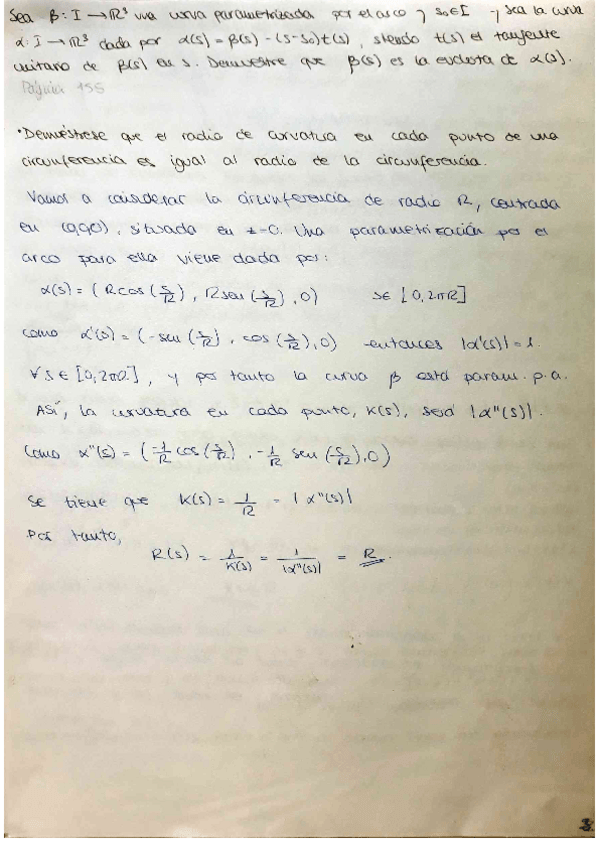 Sea β: I → ℝ³ una curva parametrizada por el arco y s₀∈I y sea la curva
α: I → ℝ³ dada por α(s) = β(s) - (s-s₀)t(s), siendo t(s) el tangente
unitario de β(s) en s. Demuestre que β(s) es la evoluta de α(s).
Página 155
• Demuéstrese que el radio de curvatura en cada punto de una
circunferencia es igual al radio de la circunferencia.
Vamos a considerar la circunferencia de radio R, centrada
en (0,0,0), situada en z=0. Una parametrización por el
arco para ella viene dada por:
α(s) = (R cos(s/R), R sen(s/R), 0) s∈[0, 2πR]
como α'(s) = (-sen(s/R), cos(s/R), 0) entonces |α'(s)| = 1.
∀s∈[0, 2πR], y por tanto la curva β está param. p.a.
Así, la curvatura en cada punto, K(s), será |α''(s)|.
Como α''(s) = (-1/R cos(s/R), -1/R sen(s/R), 0)
Se tiene que K(s) = 1/R = |α''(s)|
Por tanto,
R(s) = 1/K(s) = 1/|α''(s)| = R.